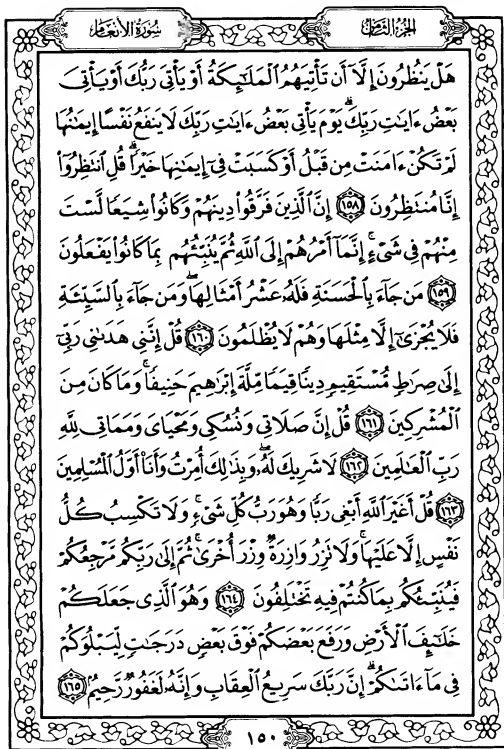 سُورَةُ الأَنْعَامِ
الجُزْءُ الثَّامِنُ
هَلْ يَنظُرُونَ إِلَّا أَن تَأْتِيَهُمُ الْمَلَٰٓئِكَةُ أَوْ يَأْتِىَ رَبُّكَ أَوْ يَأْتِىَ
بَعْضُ ءَايَٰتِ رَبِّكَ ۗ يَوْمَ يَأْتِى بَعْضُ ءَايَٰتِ رَبِّكَ لَا يَنفَعُ نَفْسًا إِيمَٰنُهَا
لَمْ تَكُنْ ءَامَنَتْ مِن قَبْلُ أَوْ كَسَبَتْ فِىٓ إِيمَٰنِهَا خَيْرًا ۗ قُلِ ٱنتَظِرُوٓا۟
إِنَّا مُنتَظِرُونَ ١٥٨ إِنَّ ٱلَّذِينَ فَرَّقُوا۟ دِينَهُمْ وَكَانُوا۟ شِيَعًا لَّسْتَ
مِنْهُمْ فِى شَىْءٍ ۚ إِنَّمَآ أَمْرُهُمْ إِلَى ٱللَّهِ ثُمَّ يُنَبِّئُهُم بِمَا كَانُوا۟ يَفْعَلُونَ
١٥٩ مَن جَآءَ بِٱلْحَسَنَةِ فَلَهُۥ عَشْرُ أَمْثَالِهَا ۖ وَمَن جَآءَ بِٱلسَّيِّئَةِ
فَلَا يُجْزَىٰٓ إِلَّا مِثْلَهَا وَهُمْ لَا يُظْلَمُونَ ١٦٠ قُلْ إِنَّنِى هَدَىٰنِى رَبِّىٓ
إِلَىٰ صِرَٰطٍ مُّسْتَقِيمٍ دِينًا قِيَمًا مِّلَّةَ إِبْرَٰهِيمَ حَنِيفًا ۚ وَمَا كَانَ مِنَ
ٱلْمُشْرِكِينَ ١٦١ قُلْ إِنَّ صَلَاتِى وَنُسُكِى وَمَحْيَاىَ وَمَمَاتِى لِلَّهِ
رَبِّ ٱلْعَٰلَمِينَ ١٦٢ لَا شَرِيكَ لَهُۥ ۖ وَبِذَٰلِكَ أُمِرْتُ وَأَنَا۠ أَوَّلُ ٱلْمُسْلِمِينَ
١٦٣ قُلْ أَغَيْرَ ٱللَّهِ أَبْغِى رَبًّا وَهُوَ رَبُّ كُلِّ شَىْءٍ ۚ وَلَا تَكْسِبُ كُلُّ
نَفْسٍ إِلَّا عَلَيْهَا ۚ وَلَا تَزِرُ وَازِرَةٌ وِزْرَ أُخْرَىٰ ۚ ثُمَّ إِلَىٰ رَبِّكُم مَّرْجِعُكُمْ
فَيُنَبِّئُكُم بِمَا كُنتُمْ فِيهِ تَخْتَلِفُونَ ١٦٤ وَهُوَ ٱلَّذِى جَعَلَكُمْ
خَلَٰٓئِفَ ٱلْأَرْضِ وَرَفَعَ بَعْضَكُمْ فَوْقَ بَعْضٍ دَرَجَٰتٍ لِّيَبْلُوَكُمْ
فِى مَآ ءَاتَىٰكُمْ ۗ إِنَّ رَبَّكَ سَرِيعُ ٱلْعِقَابِ وَإِنَّهُۥ لَغَفُورٌ رَّحِيمٌۢ ١٦٥
١٥٠